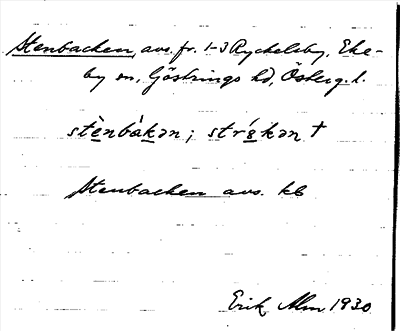 Stenbacken, avs. fr. 1-3 Ryckelsby, Eke-
by sn, Göstrings hd, Österg. l.
stènbàkən; strǿkən †
Stenbacken avs. kb
Erik Alm 1930